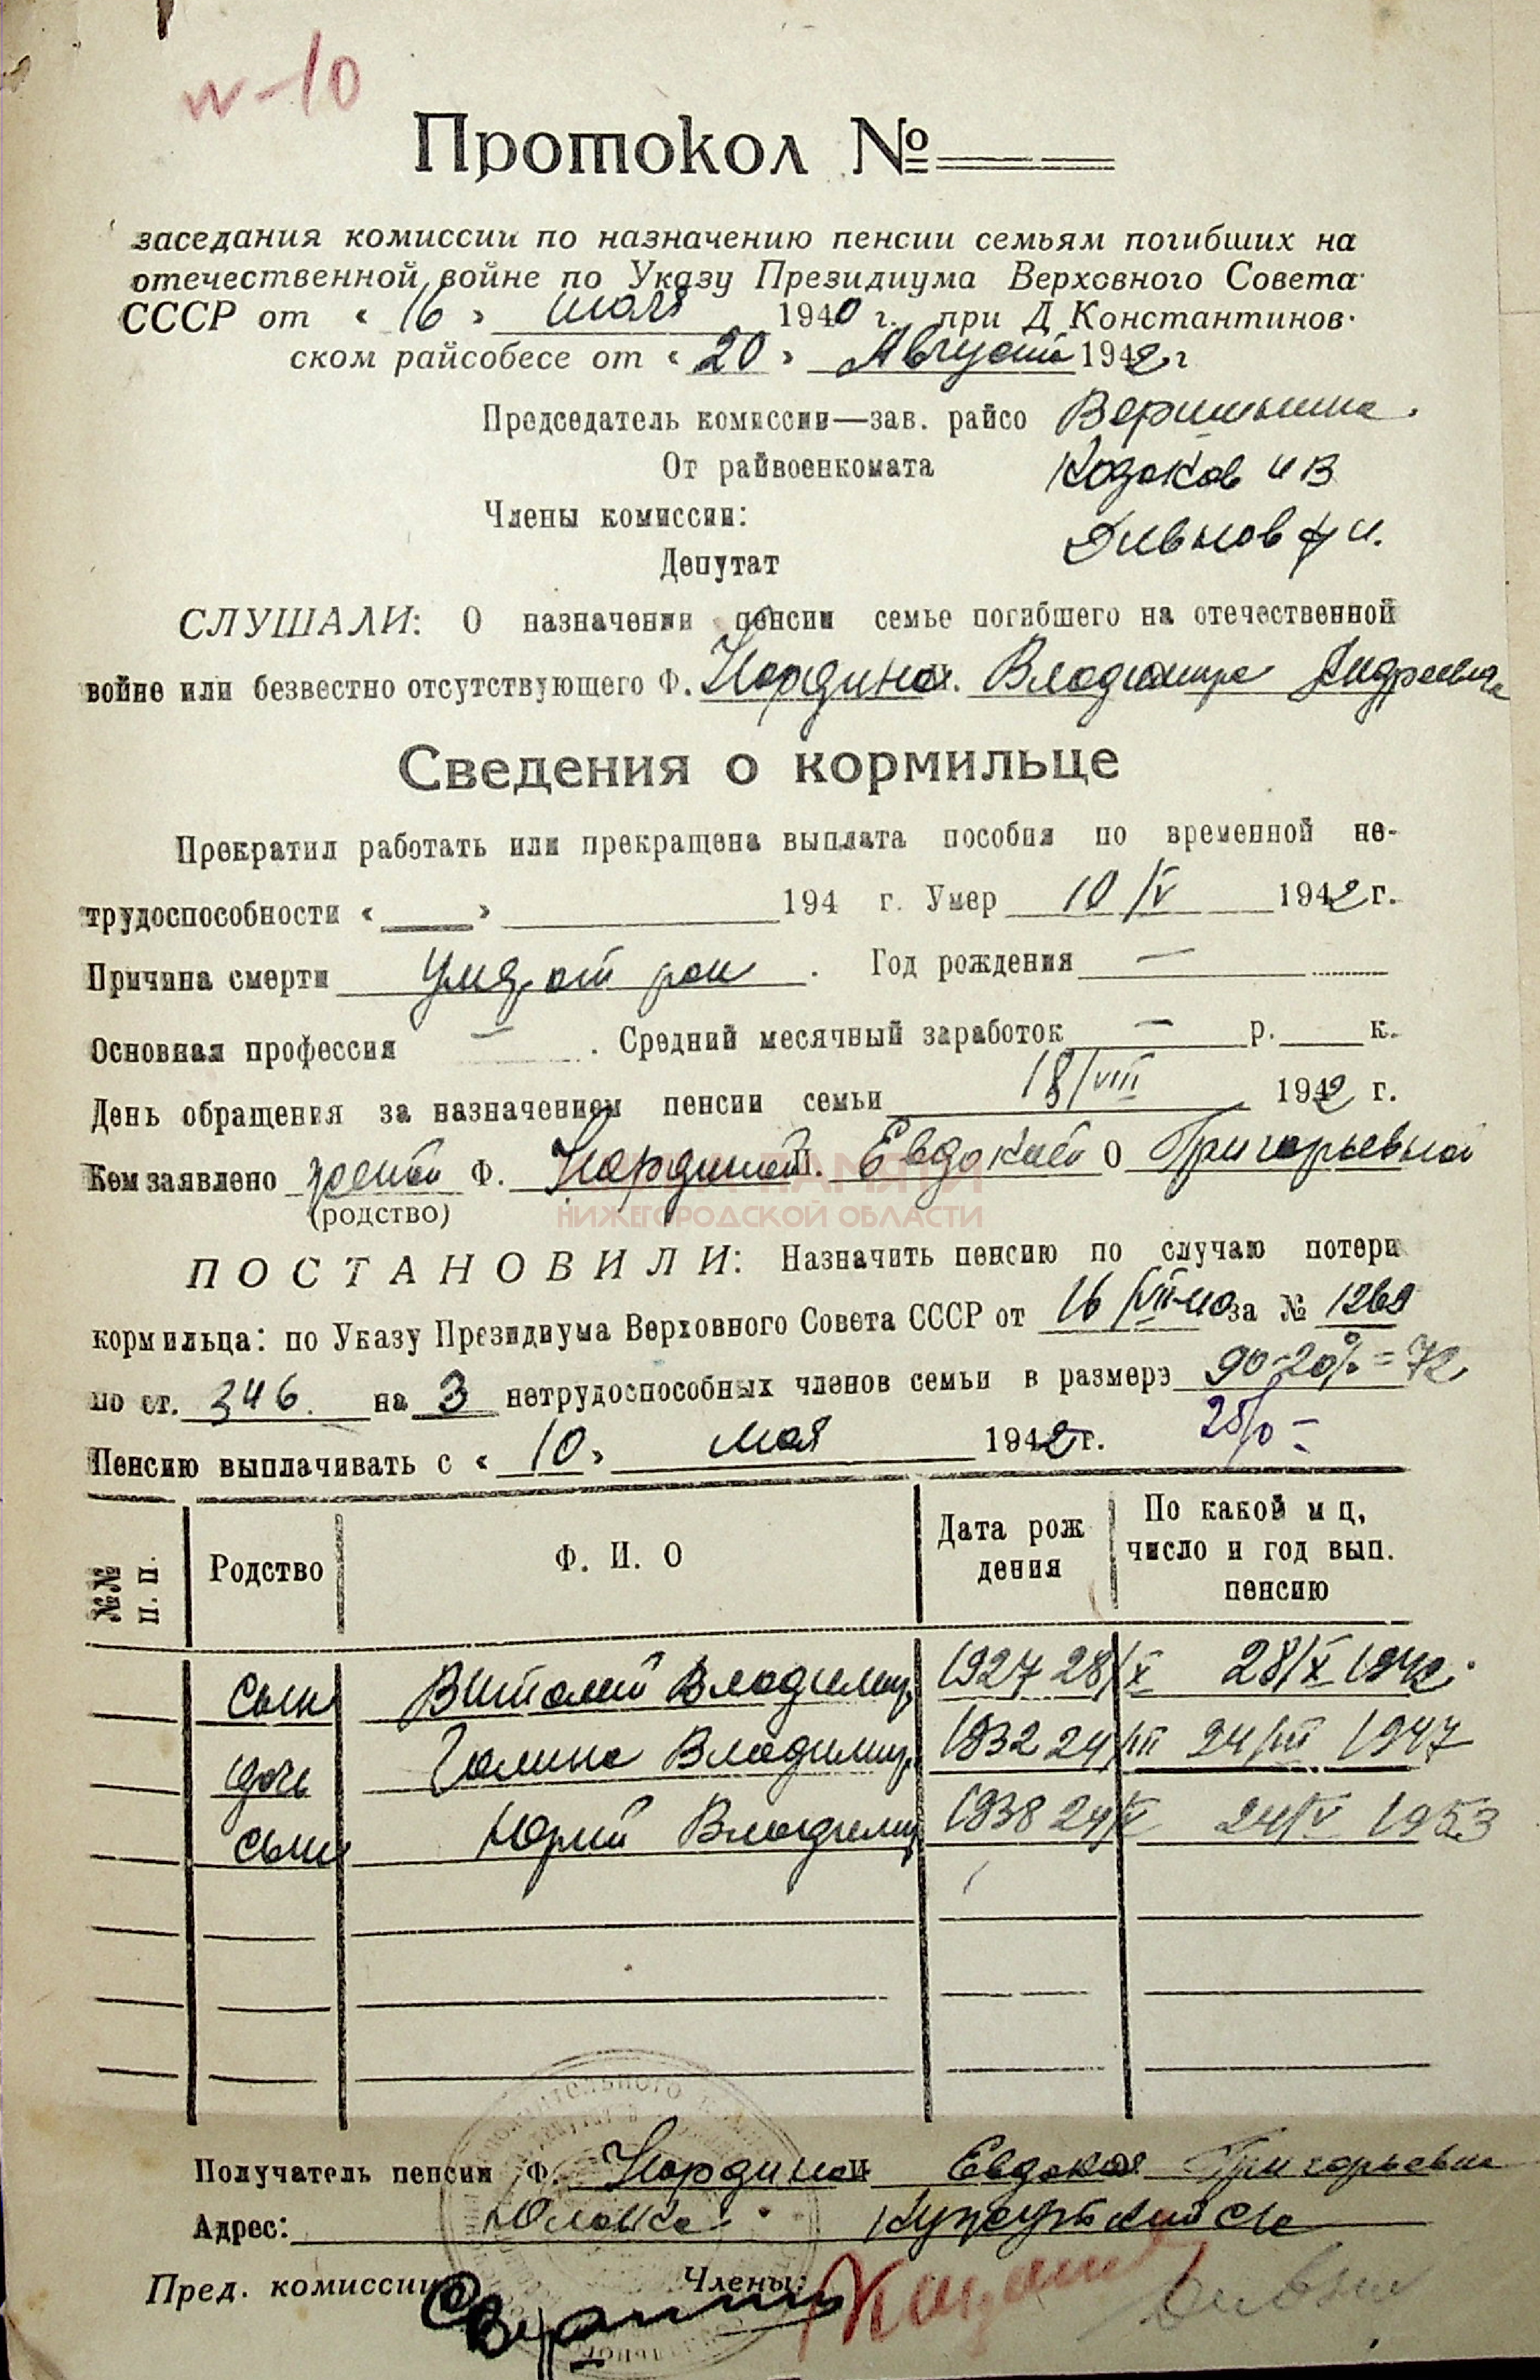 №-10
Протокол №
заседания комиссии по назначению пенсии семьям погибших на
отечественной войне по Указу Президиума Верховного Совета
СССР от « 16 » июля 1940 г. при Д Константинов-
ском райсобесе от « 20 » Август 1942 г
Председатель комиссии—зав. райсо Вершинина.
От райвоенкомата Козаков И В
Члены комиссии:
Депутат
СЛУШАЛИ: О назначении пенсии семье погибшего на отечественной
войне или безвестно отсутствующего Ф. Нордина. Владимира Андреевича
Сведения о кормильце
Прекратил работать или прекращена выплата пособия по временной не-
трудоспособности « » 194 г. Умер 10/V 1942 г.
Причина смерти умер от ран . Год рождения —
Основная профессия — . Средний месячный заработок — р. к.
День обращения за назначением пенсии семьи 18/VIII 1942 г.
Кем заявлено женой Ф. Нординой И. Евдокией О Григорьевной
(родство)
ПАМЯТИ
НИЖЕГОРОДСКОЙ ОБЛАСТИ
ПОСТАНОВИЛИ: Назначить пенсию по случаю потери
кормильца: по Указу Президиума Верховного Совета СССР от 16/VII-40 за № 1269
по ст. 346. на 3 нетрудоспособных членов семьи в размерэ 90-20% = 72
Пенсию выплачивать с « 10 » мая 1942 г.
№№ п. п. Родство Ф. И. О Дата рож дения По какой м ц, число и год вып. пенсию
сын Виталий Владимир 1927 28/X 28/X 1942.
дочь Галина Владимир. 1932 24/III 24/III 1947
сын Юрий Владимир 1938 24/V 24/V 1953
Получатель пенсии Ф. Нордина И Евдокия Григорьевна
Адрес:
Пред. комиссии Члены: